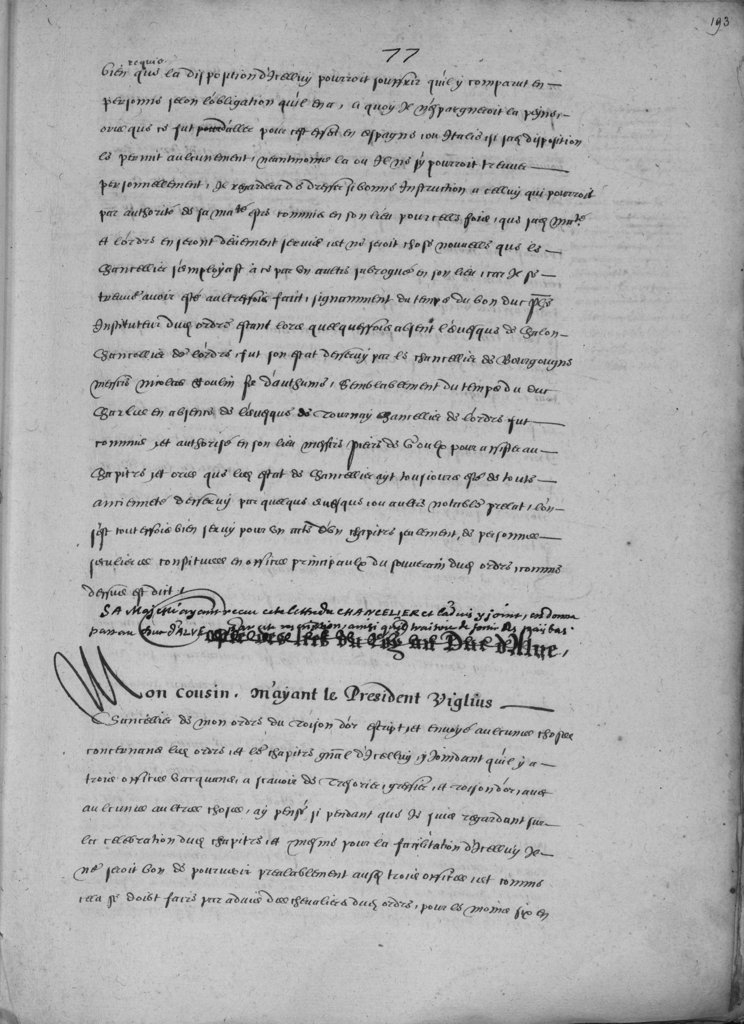 193
77
requis
bien que la disposition d'Icelluy pourroit souffrir qu'il y comparut en
personne selon l'obligation qu'il en a, a quoy Il n'espargneroit la peyne,
ores que ce fut pour aller pour cest effect en espagne, ou Italie, si sa disposition
le permit aulcunement, neantmoins la ou Il ne s'y pourroit treuver
personnellement, Il regardera de dresser si bonne Instruction a celluy qui pourroit
par authorité de sa ma.té estre commis en son lieu pour celle fois, que sa ma.té
et l'ordre en seront deuement servis, et ne seroit chose nouvelle que le
Chancellier s'employast a ce par un aultre subrogué en son lieu, car Il se
treuve avoir esté aultresfois fait, signamment du temps du bon duc phe
Instituteur dud. ordre estant lors quelquesfois absent l'evesque de Chalon
Chancellier de l'ordre, fut son estat desservy par le chancellier de Bourgougne
messire Nicolas Roulin sr. d'authume, Semblablement du temps du duc
Charles en absence de l'evesque de Tournay Chancellier de l'ordre fut
commis et authorisé en son lieu messire piere de Goulx pour assister au
Chapitre, et ores que led. estat de Chancellier ayt tousiours esté de toute
ancienneté desservy par quelque evesque, ou aultre notable prelat, l'on
s'est toutesfois bien servy pour un acte d'un chapitre seulement, de personnes
seculieres constituees en offices principaulx du souverain dud. ordre, comme
dessus est dit.
SA Majesté ayant receu cete lettre du CHANCELIER et l'advis y joint, en donna
part au Duc d'ALVE
Copie des lres du Roy au Duc d'Alve,
Mon cousin. M'ayant le President Viglius
Chancellier de mon ordre du Toison d'or escript, et envoyé aulcunes choses
concernans led. ordre, et le chapitre gnal d'Icelluy, y Joindant qu'il y a
trois offices vacquans, a scavoir de Tresorier, greffier, et toison d'or, avec
aulcunes aultres choses, ay pensé si pendant que Je suis regardant sur
la celebration dud. chapitre, et mesmes pour la facilitation d'Icelluy Il
ne seroit bon de pourveoir prealablement ausd. trois offices, et comme
cela se doibt faire par advis des chevaliers dud. ordre, pour le moins six en